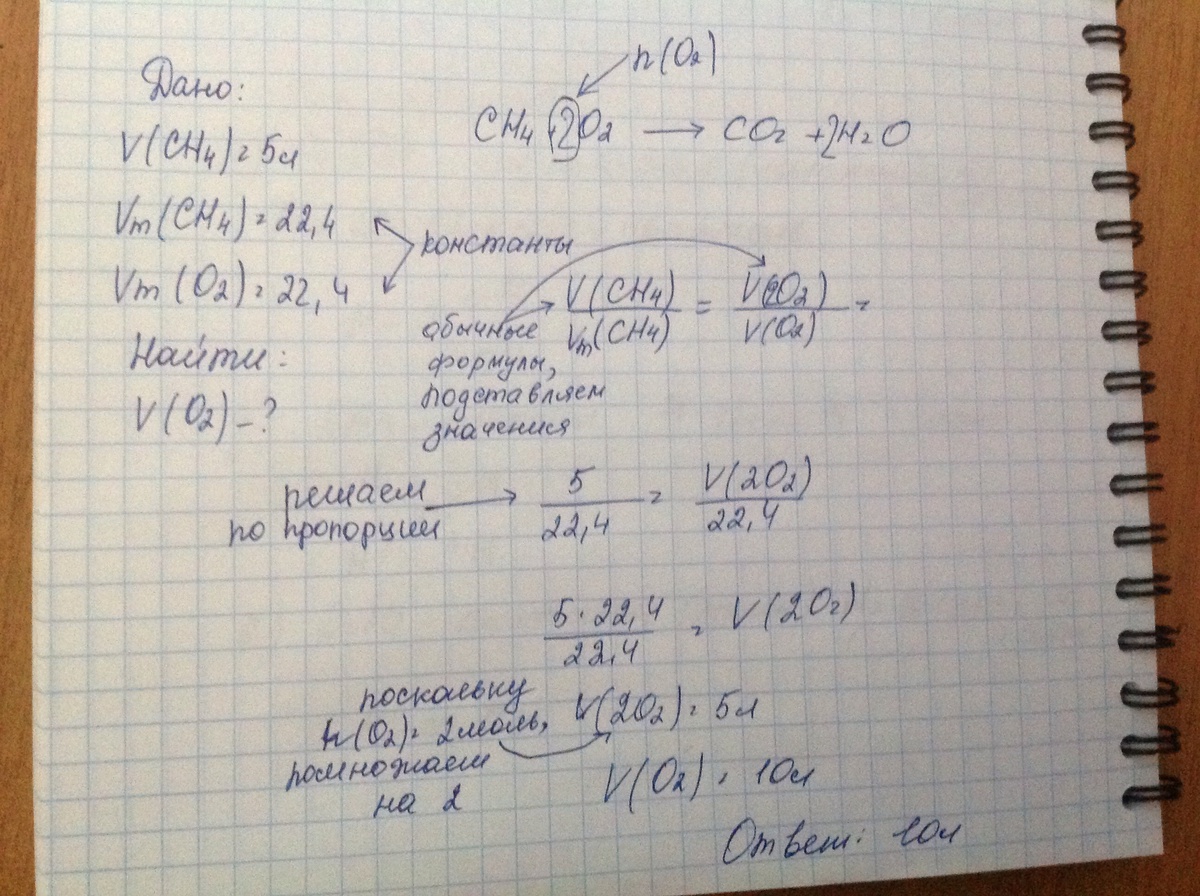 Дано:
V(CH₄) = 5л
Vm(CH₄) = 22,4
Vm(O₂) = 22,4
константы
Найти:
V(O₂) – ?
n(O₂)
CH₄ + 2O₂ → CO₂ + 2H₂O
обычные
формулы,
подставляем
значения
V(CH₄)/Vm(CH₄) = V(2O₂)/V(O₂) =
решаем
по пропорции
5/22,4 = V(2O₂)/22,4
5·22,4/22,4 = V(2O₂)
поскольку
n(O₂) = 2моль,
помножаем
на 2
V(2O₂) = 5л
V(O₂) = 10л
Ответ: 10л